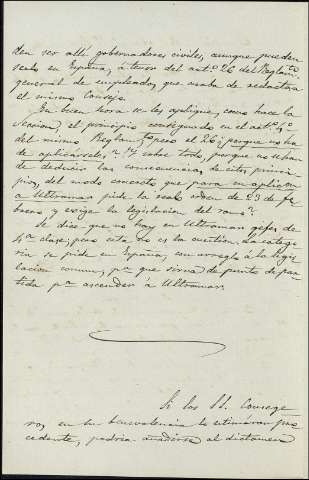 den ser allí gobernadores civiles, aunque pueden
serlo en España, á tenor del artº. 26 del Reglamto
general de empleados, que acaba de redactar
el mismo Consejo.
En buen hora se les aplique, como hace la
Sección, el principio consignado en el art. 4º
del mismo Reglamto; pero el 26 ¿porque no ha
de aplicárseles? Y sobre todo, porque no se han
de deducir las consecuencias de estos princi-
pios, del modo concreto que para su aplicaon
a Ultramar pide la real orden de 23 de fe-
brero, y exige la legislacion del ramo?
Se dice que no hay en Ultramar gefes de
4ª clase; pero esta no es la cuestion. La catego-
ria se pide en España, con arreglo a la legis-
lacion comun, pª que sirva de punto de par-
tida pª ascender á Ultramar.
Si los SS. Conseje-
ros, en su benevolencia lo estimáran pro-
cedente, podria añadirse al dictamen